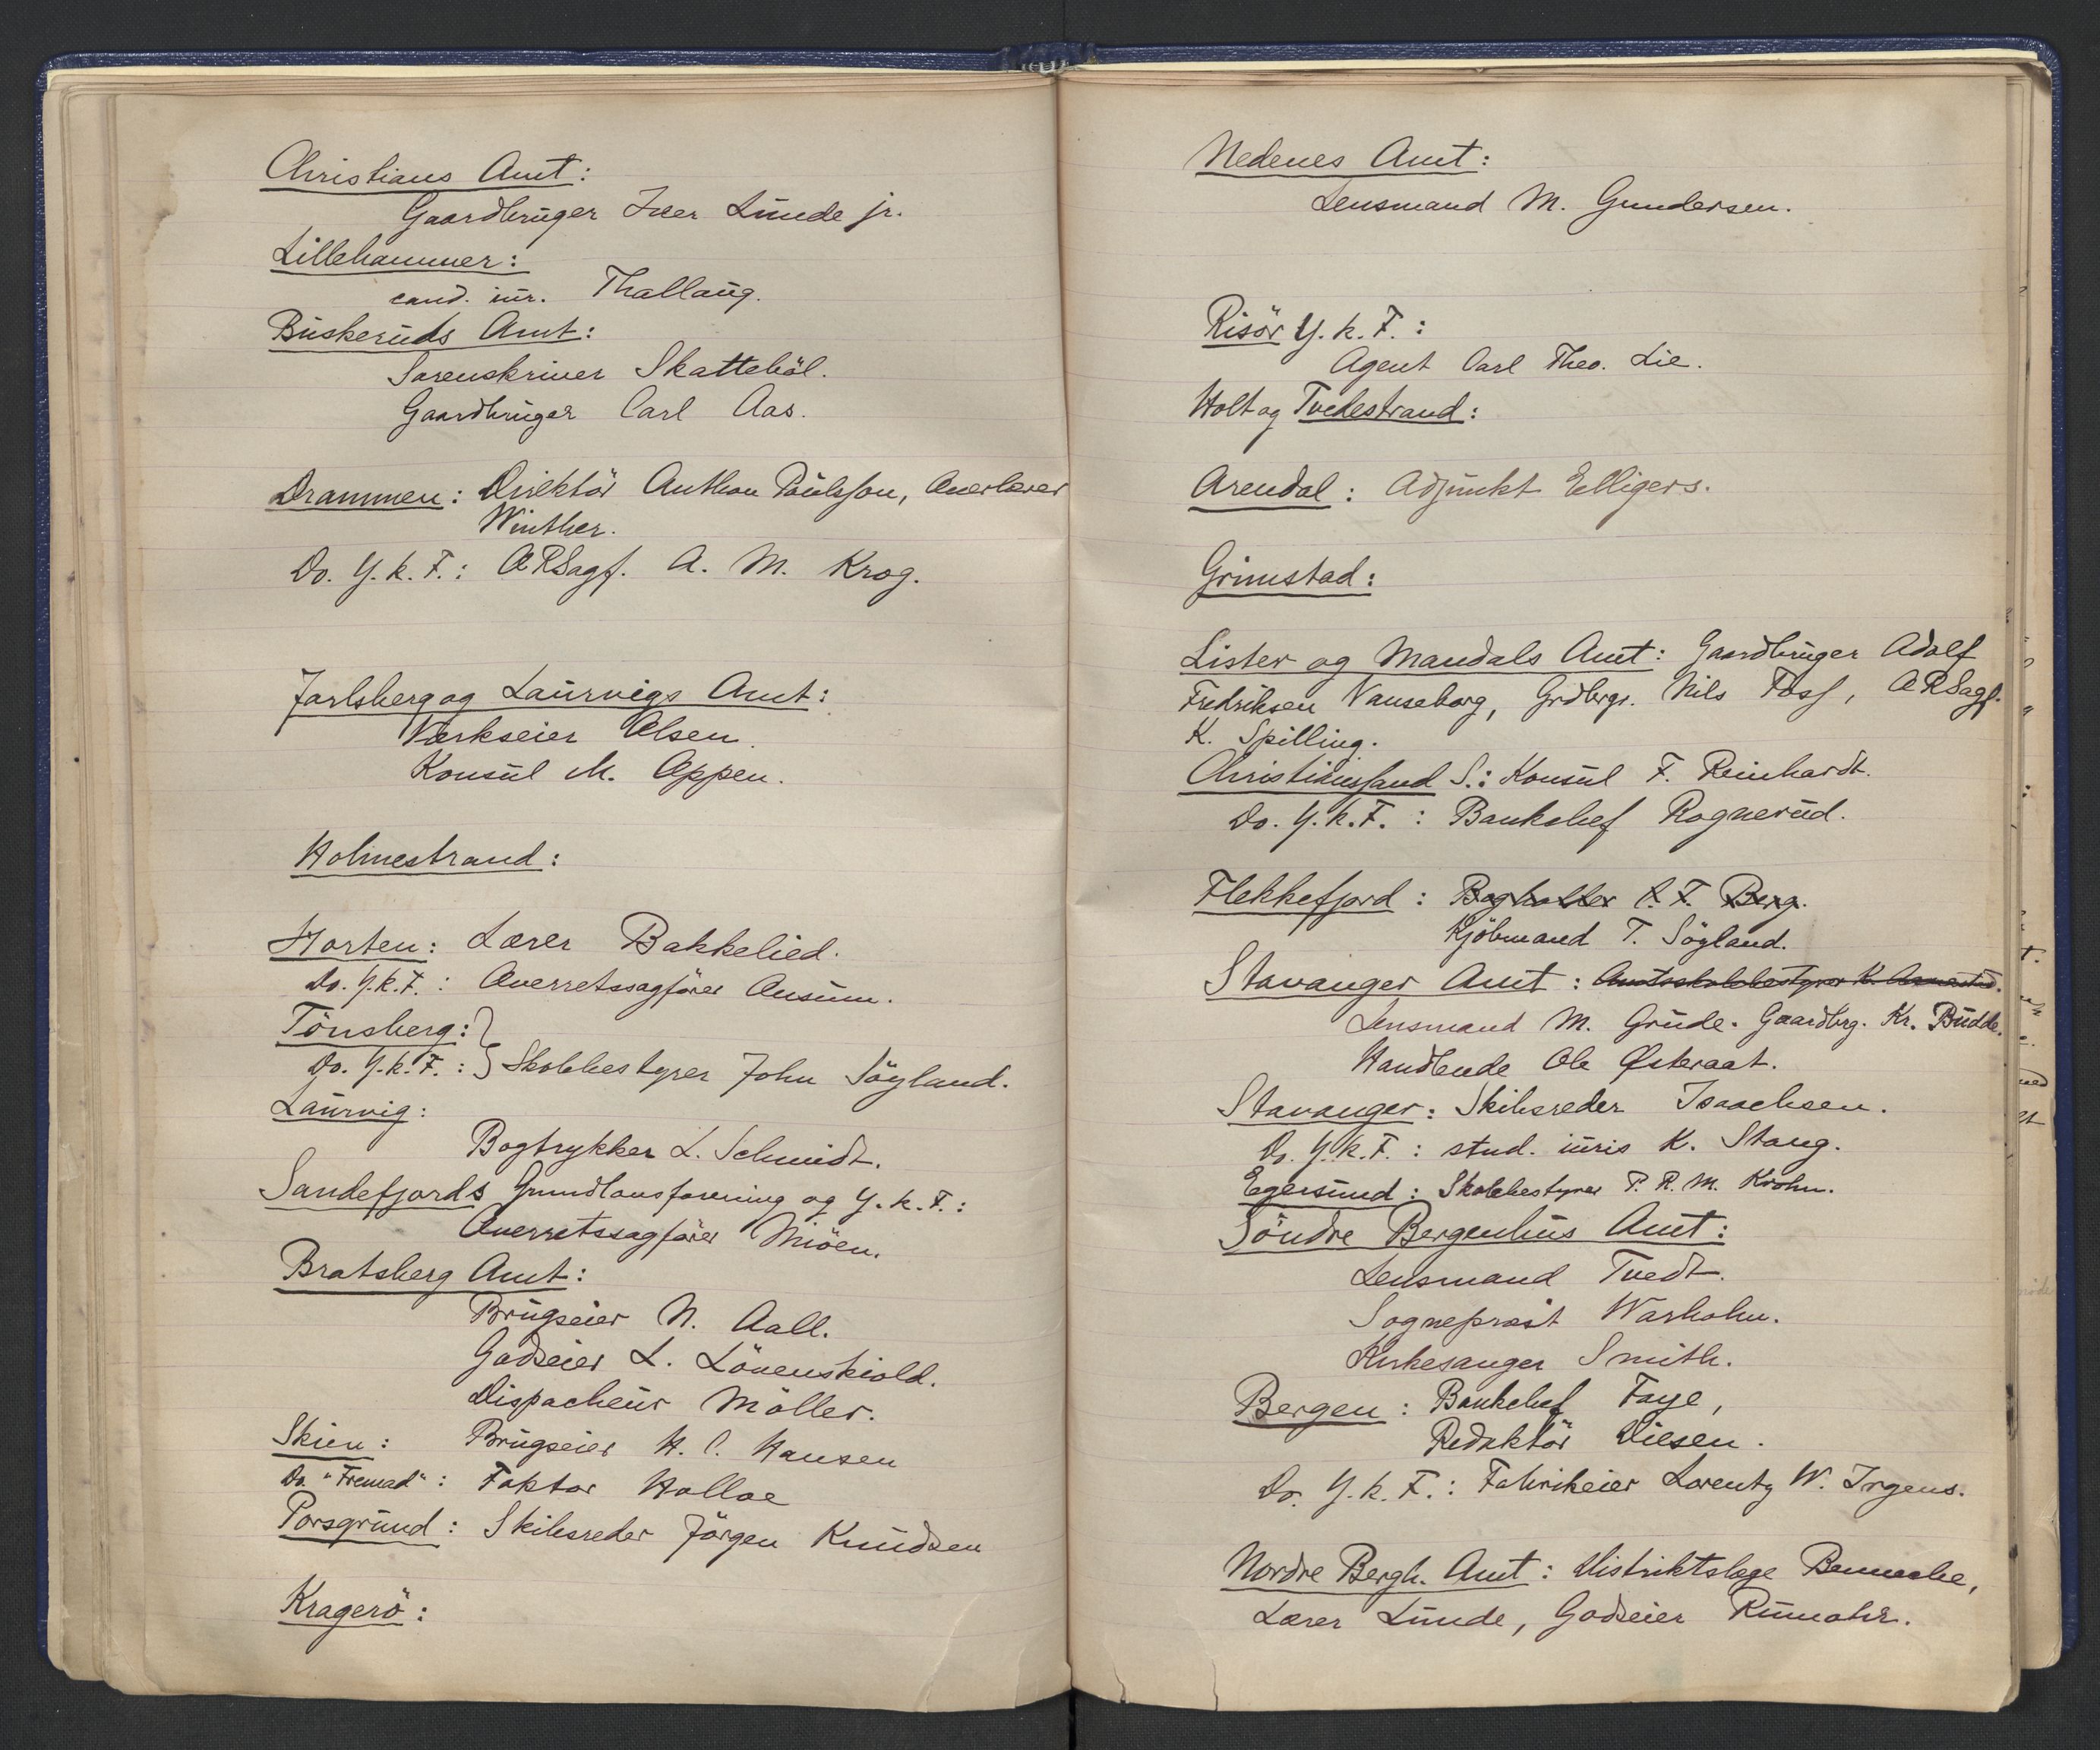 Christians Amt:
Gaardbruger Iver Lunde jr.
Lillehammer:
cand. iur. Thallaug.
Buskeruds Amt:
Sorenskriver Skattebøl.
Gaardbruger Carl Aas.
Drammen: Direktör Anthon Poulsson, Overlærer
Winther.
Do. Y.k.F.: ORSagf. A. M. Krog.
Jarlsberg og Laurvigs Amt:
Værkseier Olsen.
Konsul M. Oppen.
Holmestrand:
Horten: Lærer Bakkelied.
Do. Y.k.F.: Overretssagförer Ansum.
Tönsberg:
Do. Y.k.F.: Skolebestyrer John Söyland.
Laurvig:
Bogtrykker L. Schmidt.
Sandefjords Grundlovsforening og Y.k.F.:
Overretssagförer Miöen.
Bratsberg Amt:
Brugseier N. Aall.
Godseier L. Lövenskiold.
Dispacheur Möller.
Skien: Brugseier H. C. Hansen
Do. "Fremad": Faktor Holloe
Porsgrund: Skibsreder Jörgen Knudsen
Kragerö:
Nedenes Amt:
Lensmand M. Gundersen.
Risör Y.k.F.:
Agent Carl Theo. Lie.
Holt og Tvedestrand:
Arendal: Adjunkt Elligers.
Grimstad:
Lister og Mandals Amt: Gaardbruger Adolf
Fredriksen Vanseborg, Grdbrgr. Nils Foss, ORSagf.
K. Spilling.
Christianssand S.: Konsul F. Reinhardt.
Do. Y.k.F.: Bankchef Rognerud.
Flekkefjord: Bogholder C. F. Berg.
Kjöbmand T. Söyland.
Stavanger Amt: Amtsskolebestyrer K.
Lensmand M. Grude. Gaardbrg. Kr. Budde.
Handlende Ole Østeraat.
Stavanger: Skibsreder Isaachsen.
Do. Y.k.F.: stud. iuris K. Stang.
Egersund: Skolebestyrer P. R. M. Krohn.
Söndre Bergenhus Amt:
Lensmand Tvedt.
Sogneprest Warholm.
Kirkesanger Smith.
Bergen: Bankchef Faye,
Redaktör Diesen.
Do. Y.k.F.: Fabrikeier Lorentz W. Irgens.
Nordre Bergh. Amt: Distriktslæge Benneche,
Lærer Lunde, Godseier Rumohr.